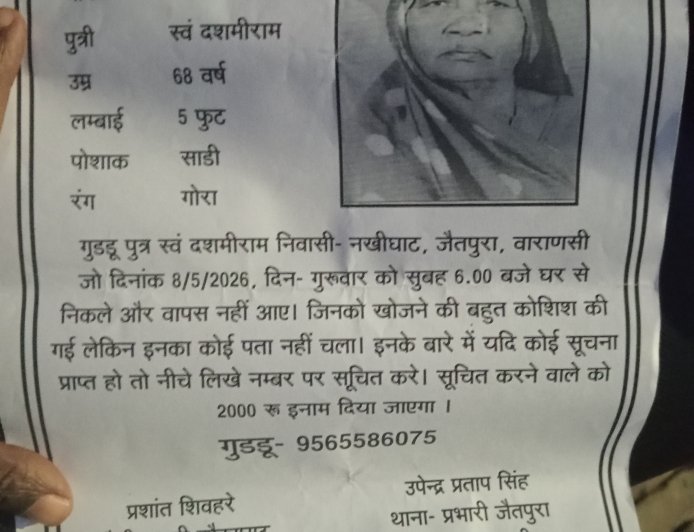 पुत्री स्वं दशमीराम
उम्र 68 वर्ष
लम्बाई 5 फुट
पोशाक साडी
रंग गोरा
गुडडू पुत्र स्वं दशमीराम निवासी- नखीघाट, जैतपुरा, वाराणसी
जो दिनांक 8/5/2026, दिन- गुरूवार को सुबह 6.00 बजे घर से
निकले और वापस नहीं आए। जिनको खोजने की बहुत कोशिश की
गई लेकिन इनका कोई पता नहीं चला। इनके बारे में यदि कोई सूचना
प्राप्त हो तो नीचे लिखे नम्बर पर सूचित करे। सूचित करने वाले को
2000 रू इनाम दिया जाएगा ।
गुडडू- 9565586075
उपेन्द्र प्रताप सिंह
प्रशांत शिवहरे
थाना- प्रभारी जैतपुरा